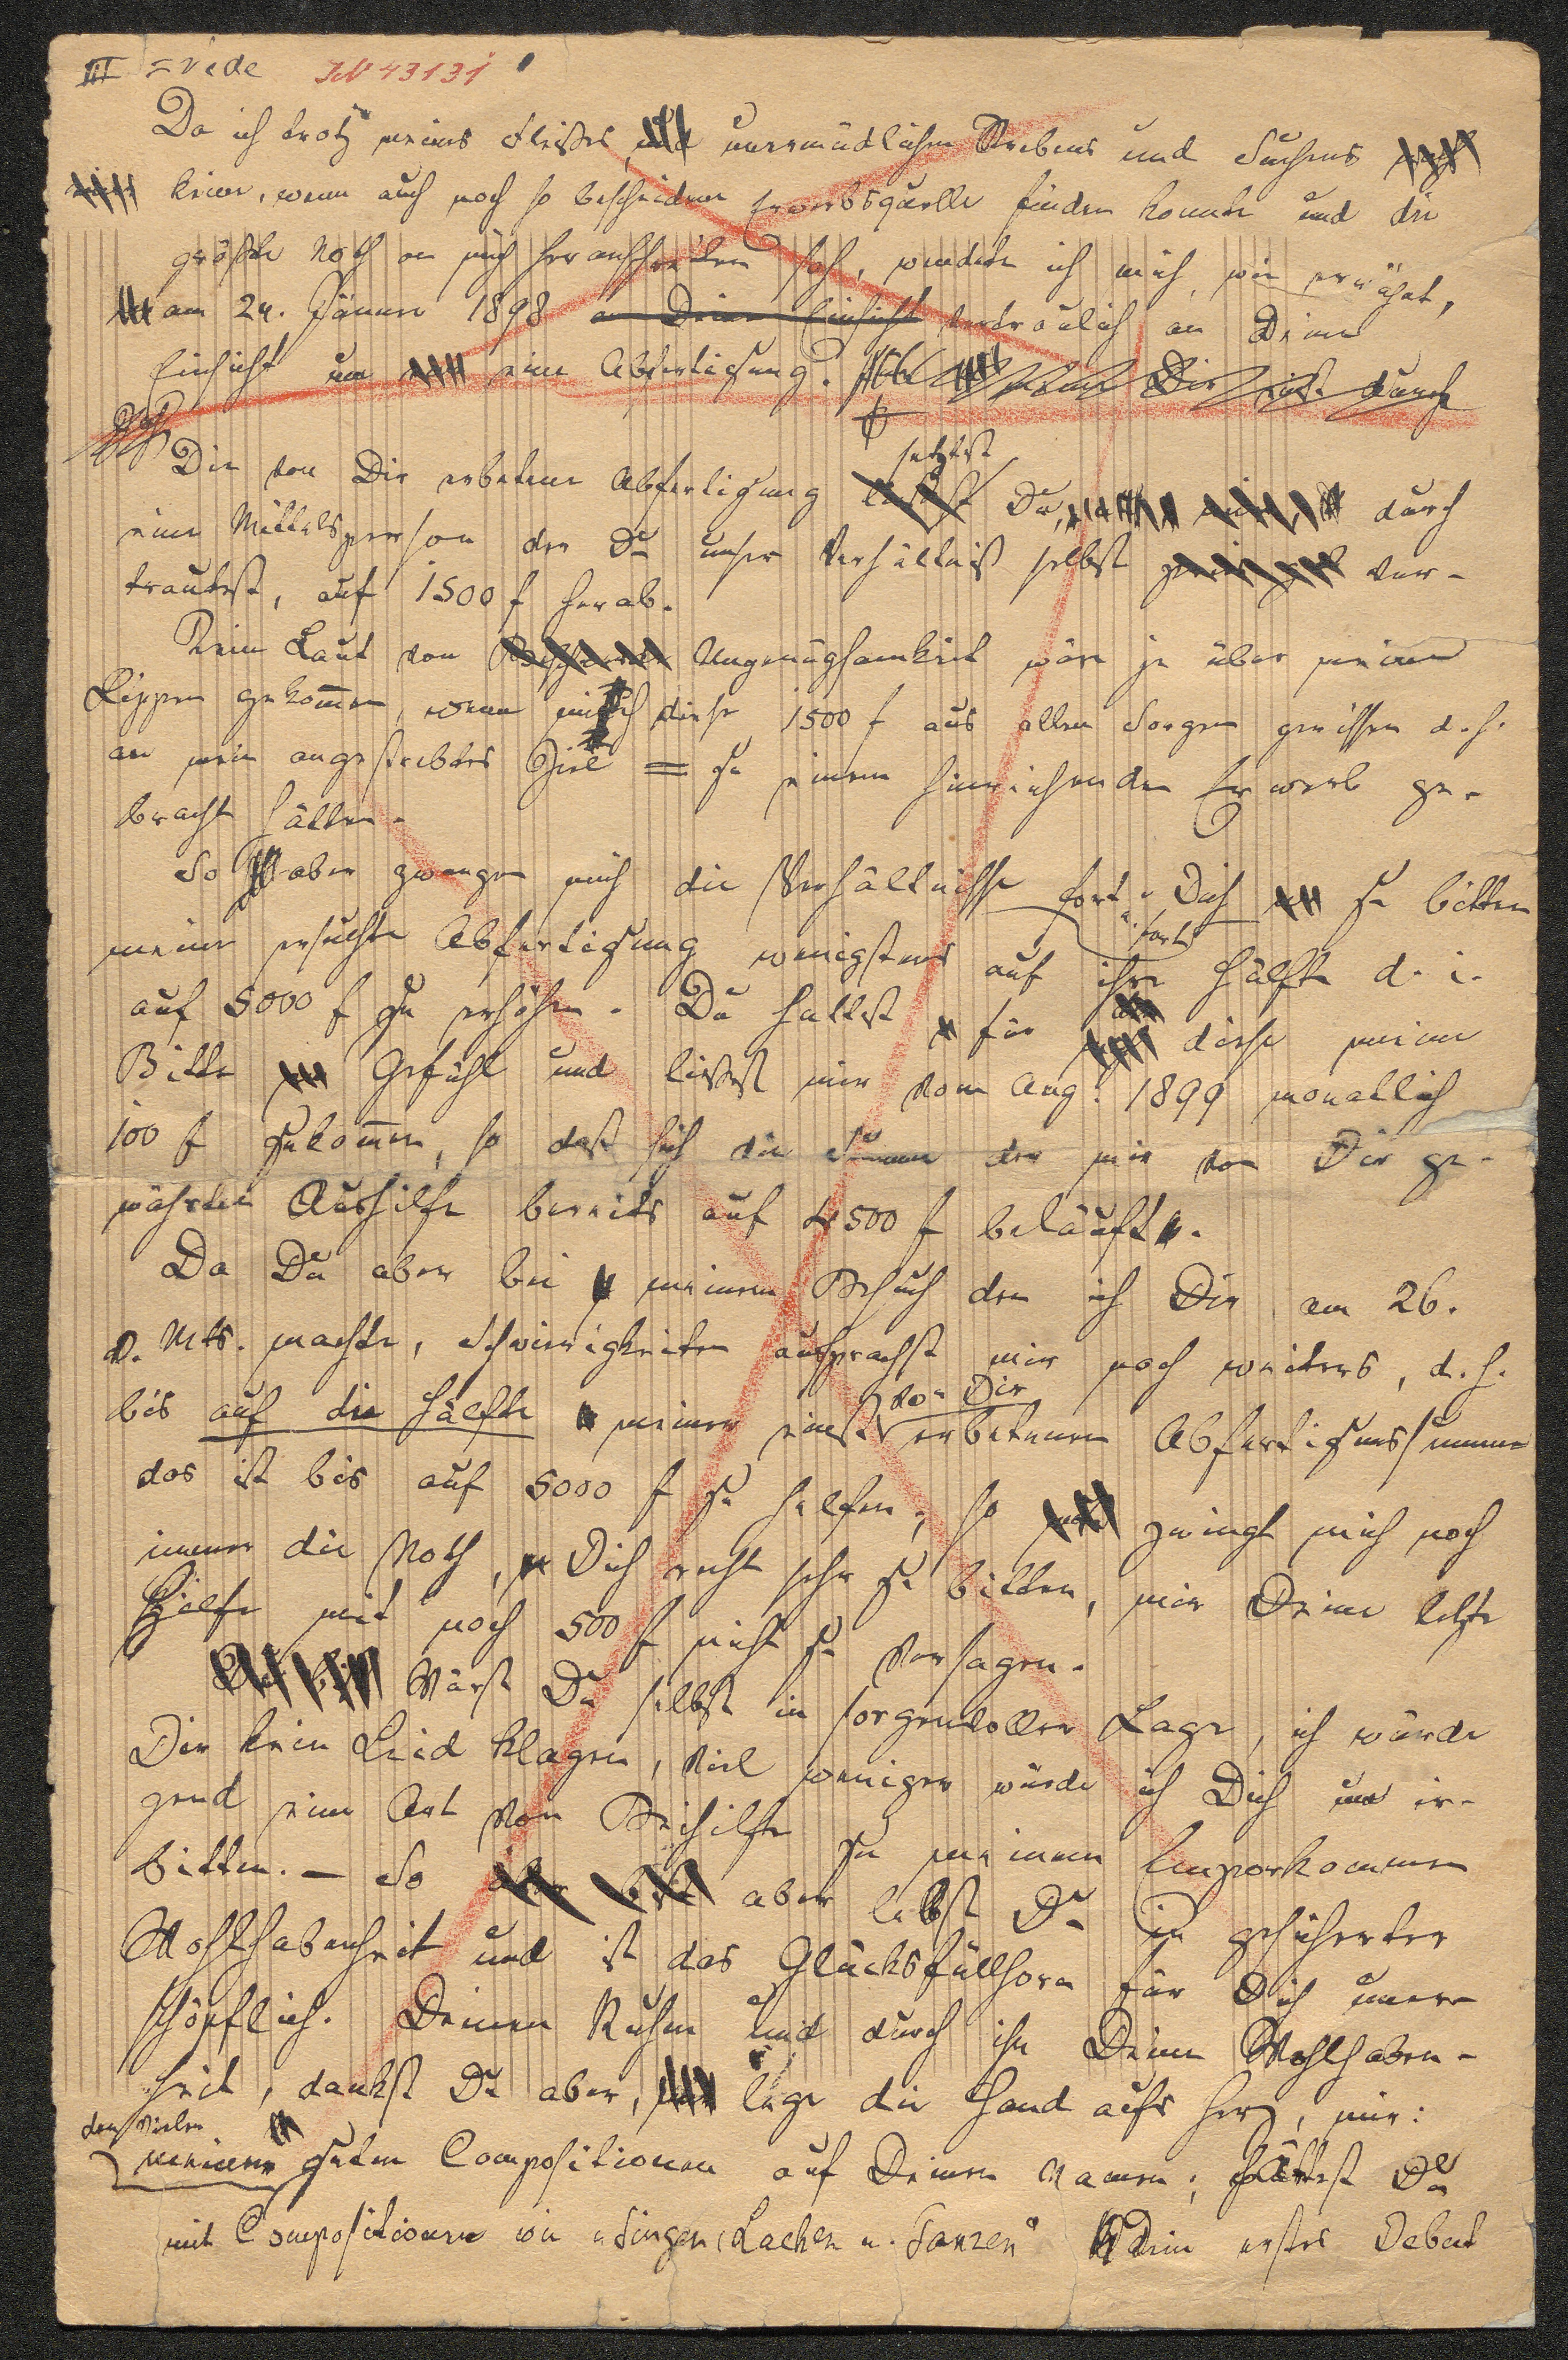 III = vide JN 43131
Da ich trotz meines Fleißes, und unermüdlichen Strebens und Suchens
keine, wenn auch noch so bescheidene Erwerbsquelle finden konnte und die
größte Noth an mich heranschreiten sah, wendete ich mich, wie erwähnt,
am 24. Jänner 1898 an Deine Einsicht vertraulich an Deine
Einsicht um eine Abfertigung. Dir durch
Die von Dir erbetene Abfertigung setztest Du, durch
eine Mittelsperson der Du unser Verhältniß selbst ver-
trautest, auf 1500 f herab.
Kein Laut von Ungenügsamkeit wäre je über meine
Lippen gekommen, wenn mich diese 1500 f aus allen Sorgen gerissen d. h.
an mein angestrebtes Ziel = zu einem hinreichenden Erwerb ge-
bracht hätten.
So aber zwangen mich die Verhältnisse fort u. fort Dich zu bitten
meine ersuchte Abfertigung wenigstens auf ihre Hälfte d. i.
auf 5000 f zu erhöhen. Du hattest für diese meine
Bitte Gefühl und ließest mir vom Aug. 1899 monatlich
100 f zukommen, so daß sich die Summe der mir von Dir ge-
währten Aushilfe bereits auf 4500 f beläuft.
Da Du aber bei meinem Besuch den ich Dir am 26.
d. Mts. machte, Schwierigkeiten aussprachst mir noch weiters, d. h.
bis auf die Hälfte meiner einst von Dir erbetenen Abfertigungssumme
das ist bis auf 5000 f zu helfen; so zwingt mich noch
immer die Noth, Dich recht sehr zu bitten, mir Deine letzte
Hilfe mit noch 500 f nicht zu versagen.
Wärst Du selbst in sorgenvoller Lage, ich würde
Dir kein Leid klagen, viel weniger würde ich Dich um ir-
gend eine Art von Beihilfe zu meinem Emporkommen
bitten. – So aber lebst Du in gesicherter
Wohlhabenheit und ist das Glücksfüllhorn für Dich uner-
schöpflich. Deinen Ruhm und durch ihn Deine Wohlhaben-
heit, dankst Du aber, lege die Hand aufs Herz, mir:
den vielen
meinen guten Compositionen auf Deinen Namen; hättest Du
mit Compositionen wie „Singen, Lachen u. Tanzen" Dein erstes Debut